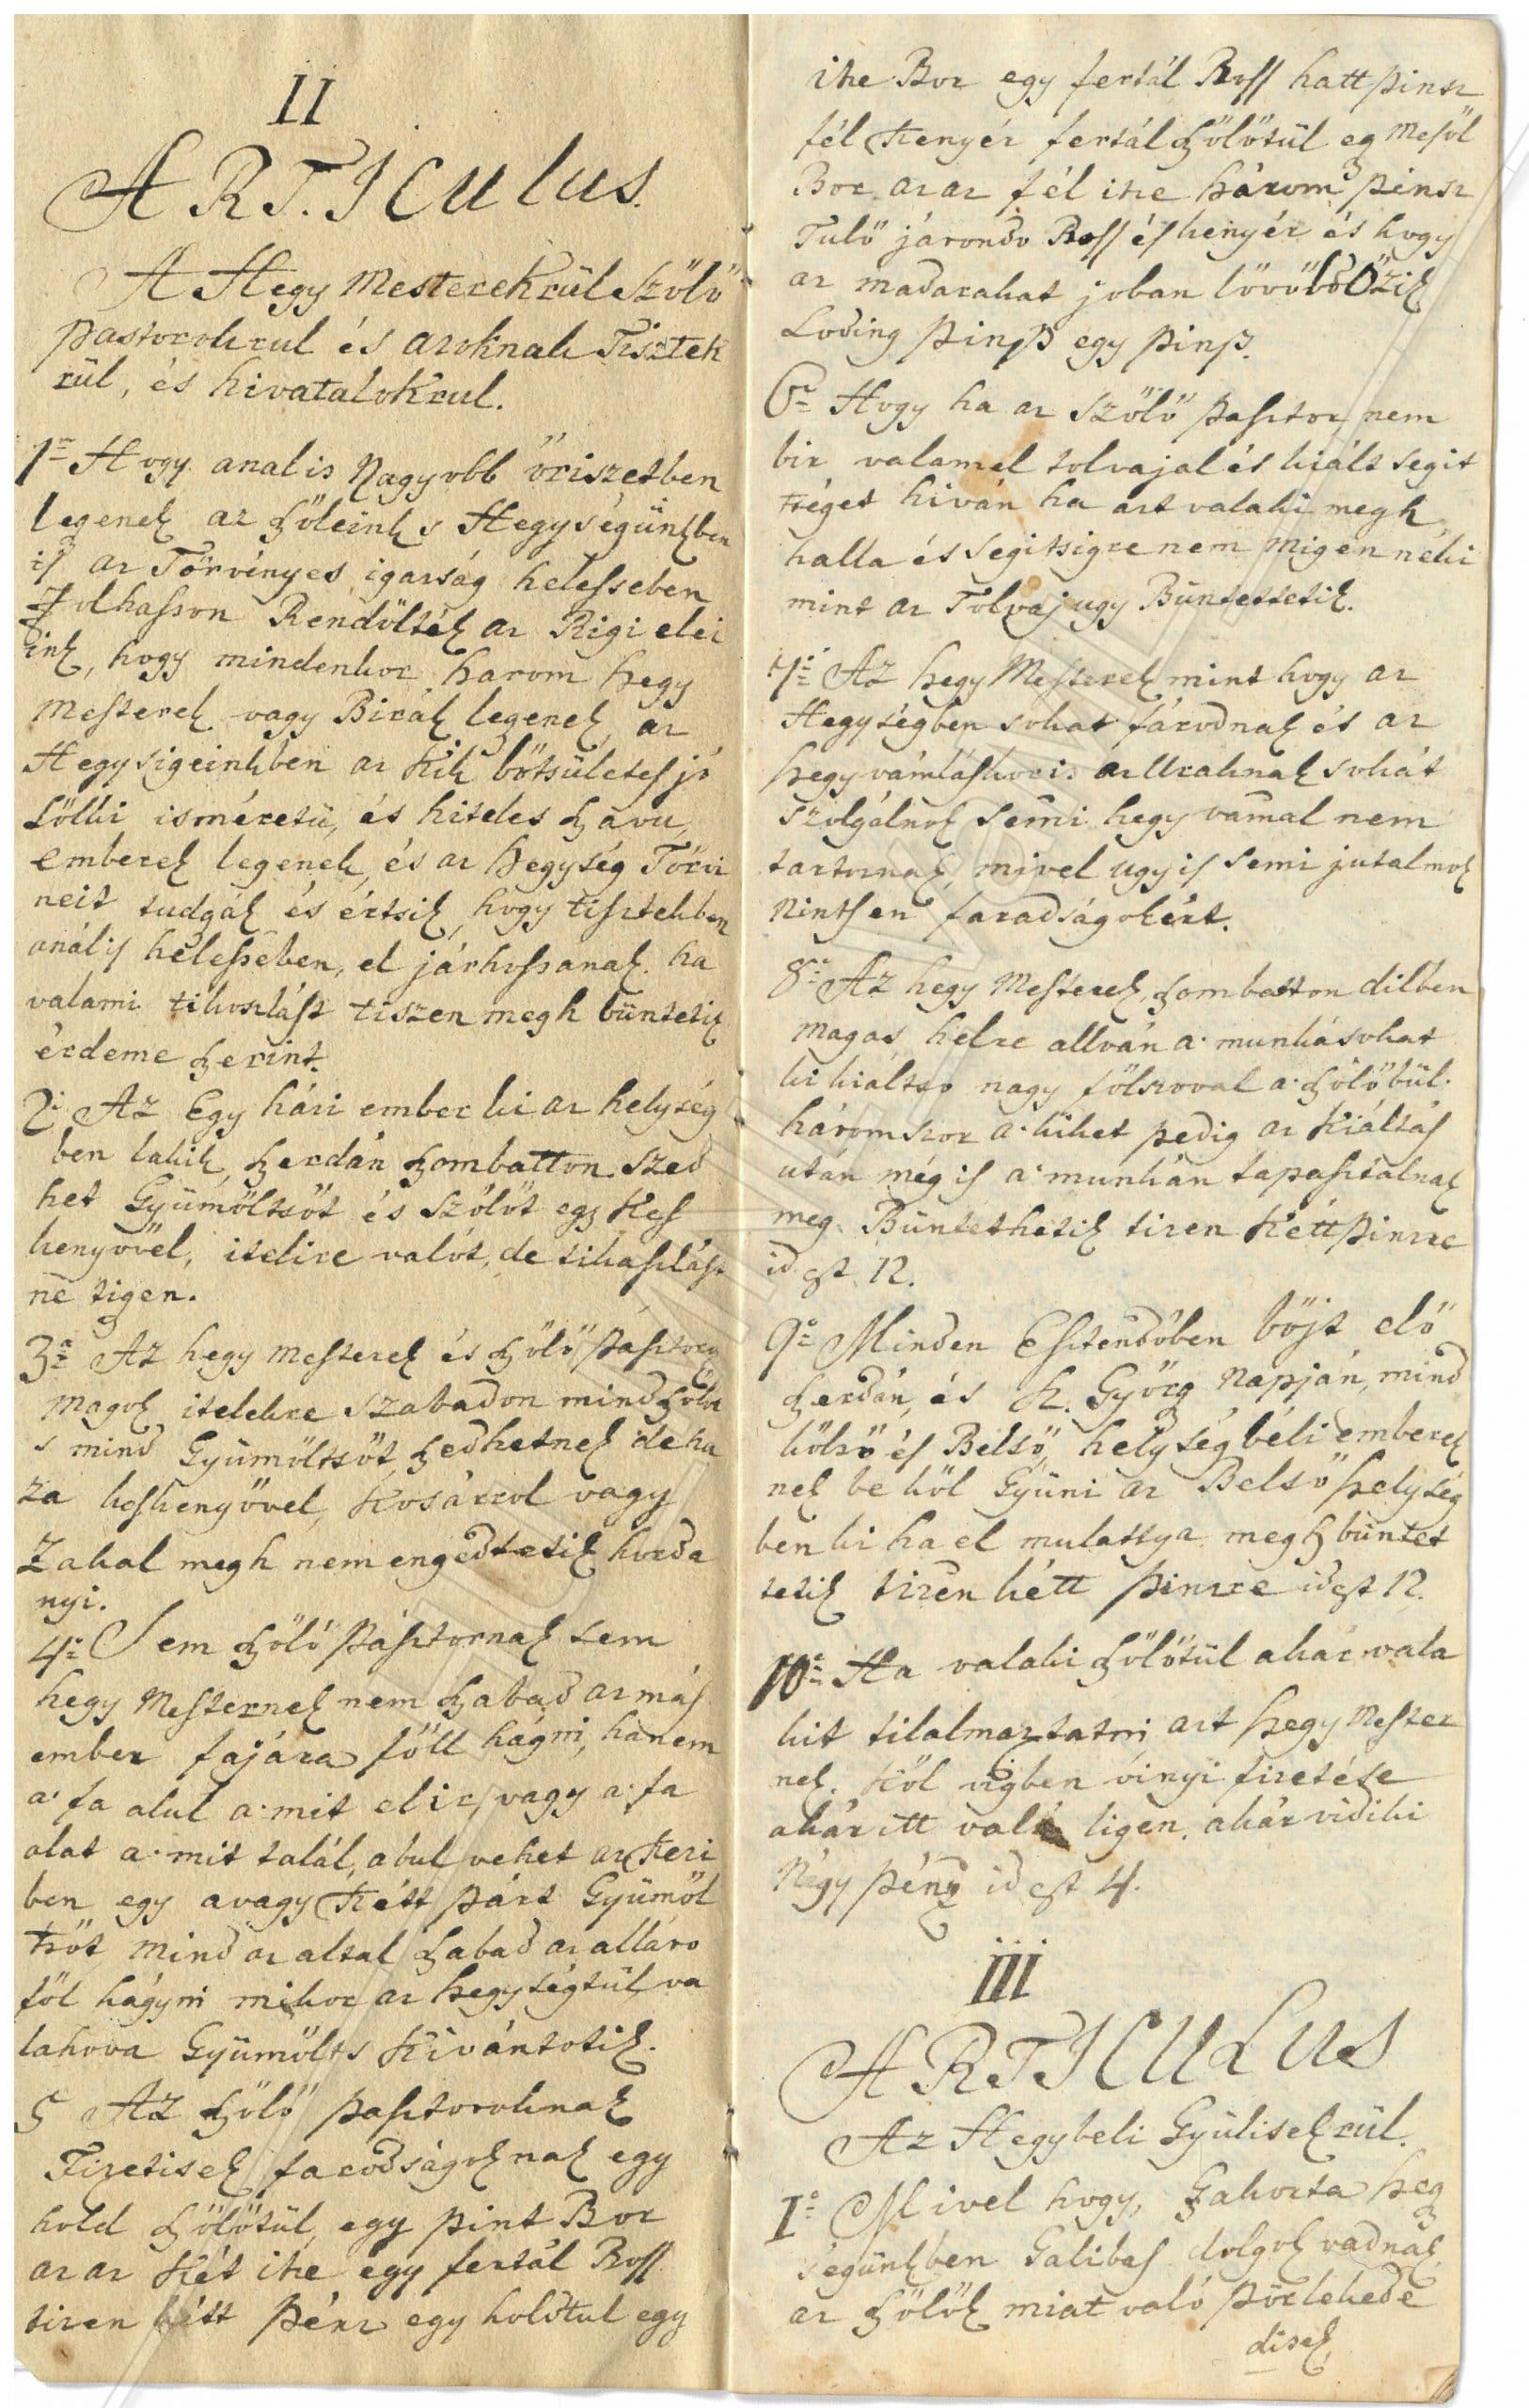 II
ARTICUlus.
A Hegy MesterekrülSzölö
pastorokrul és azoknak Tisztek
rül, és hivatalokrul.
1º Hogy anal is Nagyobb öriszetben
legenek az Szöleink s Hegységünkben
is az Törvényes igasság helesseben
folhasson Rendölték az Rigi elei
ink, hogy mindenkor harom hegy
Mesterek vagy Birák legenek, az
Hegysigeinkben az kik bötsületes jó
Lölki isméretü, és hiteles szavu,
emberek legenek, és az hegység Törvi
neit tudgák és értsik, hogy tisztekben
anál is helesseben, el járhossanak. ha
valami tikozlást tiszen megh büntetik
érdeme szerint.
2: Az Egy házi ember ki az helység
ben lakik, Szerdán Szombatton szed
het Gyümöltsöt és szölöt egy kes
kenyövel, itelire valót, de tikaszlást
ne tigen.
3ª Az hegy mesterek és Szölö pásztorz
magok itelekre szabadon mind Szölöt
s mind Gyümöltsöt, szedhetnek de ha
za keskenyövel, kosárrol vagy
Zakal megh nem engedtetik horda
nyi.
4º Sem Szölö Pásztornak sem
hegy Mesternek nem Szabad az más
ember fajára föll hágni, hanem
a: fa alul a: mit elir, vagy a: fa
alat a: mit talál, abul vehet az kezi
ben egy avagy kétt párt Gyümöl
tsöt, mind az altal Szabad az alláro
föl hágyni mikor az hegységtül va
lahova Gyümölts kivántotik.
5 Az Szölö pasztoroknak
Fizetisek faradságoknak egy
hold Szölötül, egy pint Bor
az az két itze egy fertál Ross
tizen kétt pénz egy holdtul egy
itze Bor egy fertál Ross hatt pinsz
fél kenyér fertál Szölötül eg mesöl
Bor az az fél itze három pénsz
Tulö járondo Ross és kenyér és hogy
az madarakat joban lövöldözik
Loding pinsz egy pinsz.
6º Hogy ha az Szölö pasztor nem
bir valamel tolvajal és kiált segit
tséget hiván ha azt valaki megh
halla és segitsigre nem migen néki
mint az Tolvaj ugy Büntettetik.
7º Az hegy Mesterek mint hogy az
Hegységben sokat fáradnak és az
hegyvámláskoris az Uraknak sokát
szolgálnak Semi hegy vámal nem
tartoznak, mivel ugy is semi jutalmok
Nintsen faradságokért.
8º Az hegy Mesterek, szombatton dilben
magas helre allván a: munkásokat
ki kialtso nagy fölszoval a: Szölöbül.
háromszor a: kiket pedig az kiáltás
után még is a: munkán tapasztalnak
meg Büntethetik tizen kétt pinzre
id est 12.
9º Minden Esztendöben böjt elö
szerdán, és Sz. Györg Napján, mind
külsö és Belsö, helység béli emberek
nek be köl Gyüni az Belsö helység
ben ki ha el mulattya megh büntet
tetik tizen kétt pinzre id est 12.
10º Ha valaki Szölötül akar vala
kit tilalmaztatni azt hegy Mester
nek köl vigben vinyi fizetése
akár itt való ligen, akár vidiki
Négy pénz id est 4.
iii
ARTICULUS
Az Hegybeli Gyülisekrül.
Iº Mivel hogy, Gakorta heg
ségünkben Galibas dolgok vadnak,
az Szölök miat való pörlekede
disek,